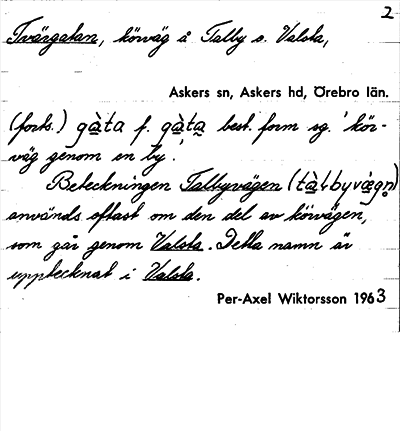 2
Tvärgatan, körväg å Talby o. Valsta,
Askers sn, Askers hd, Örebro län.
(forts.) gàta f. gàta best. form sg. 'kör-
väg genom en by'.
Beteckningen Talbyvägen (tàlbyvägn)
används oftast om den del av körvägen,
som går genom Valsta. Detta namn är
upptecknat i Valsta.
Per-Axel Wiktorsson 1963